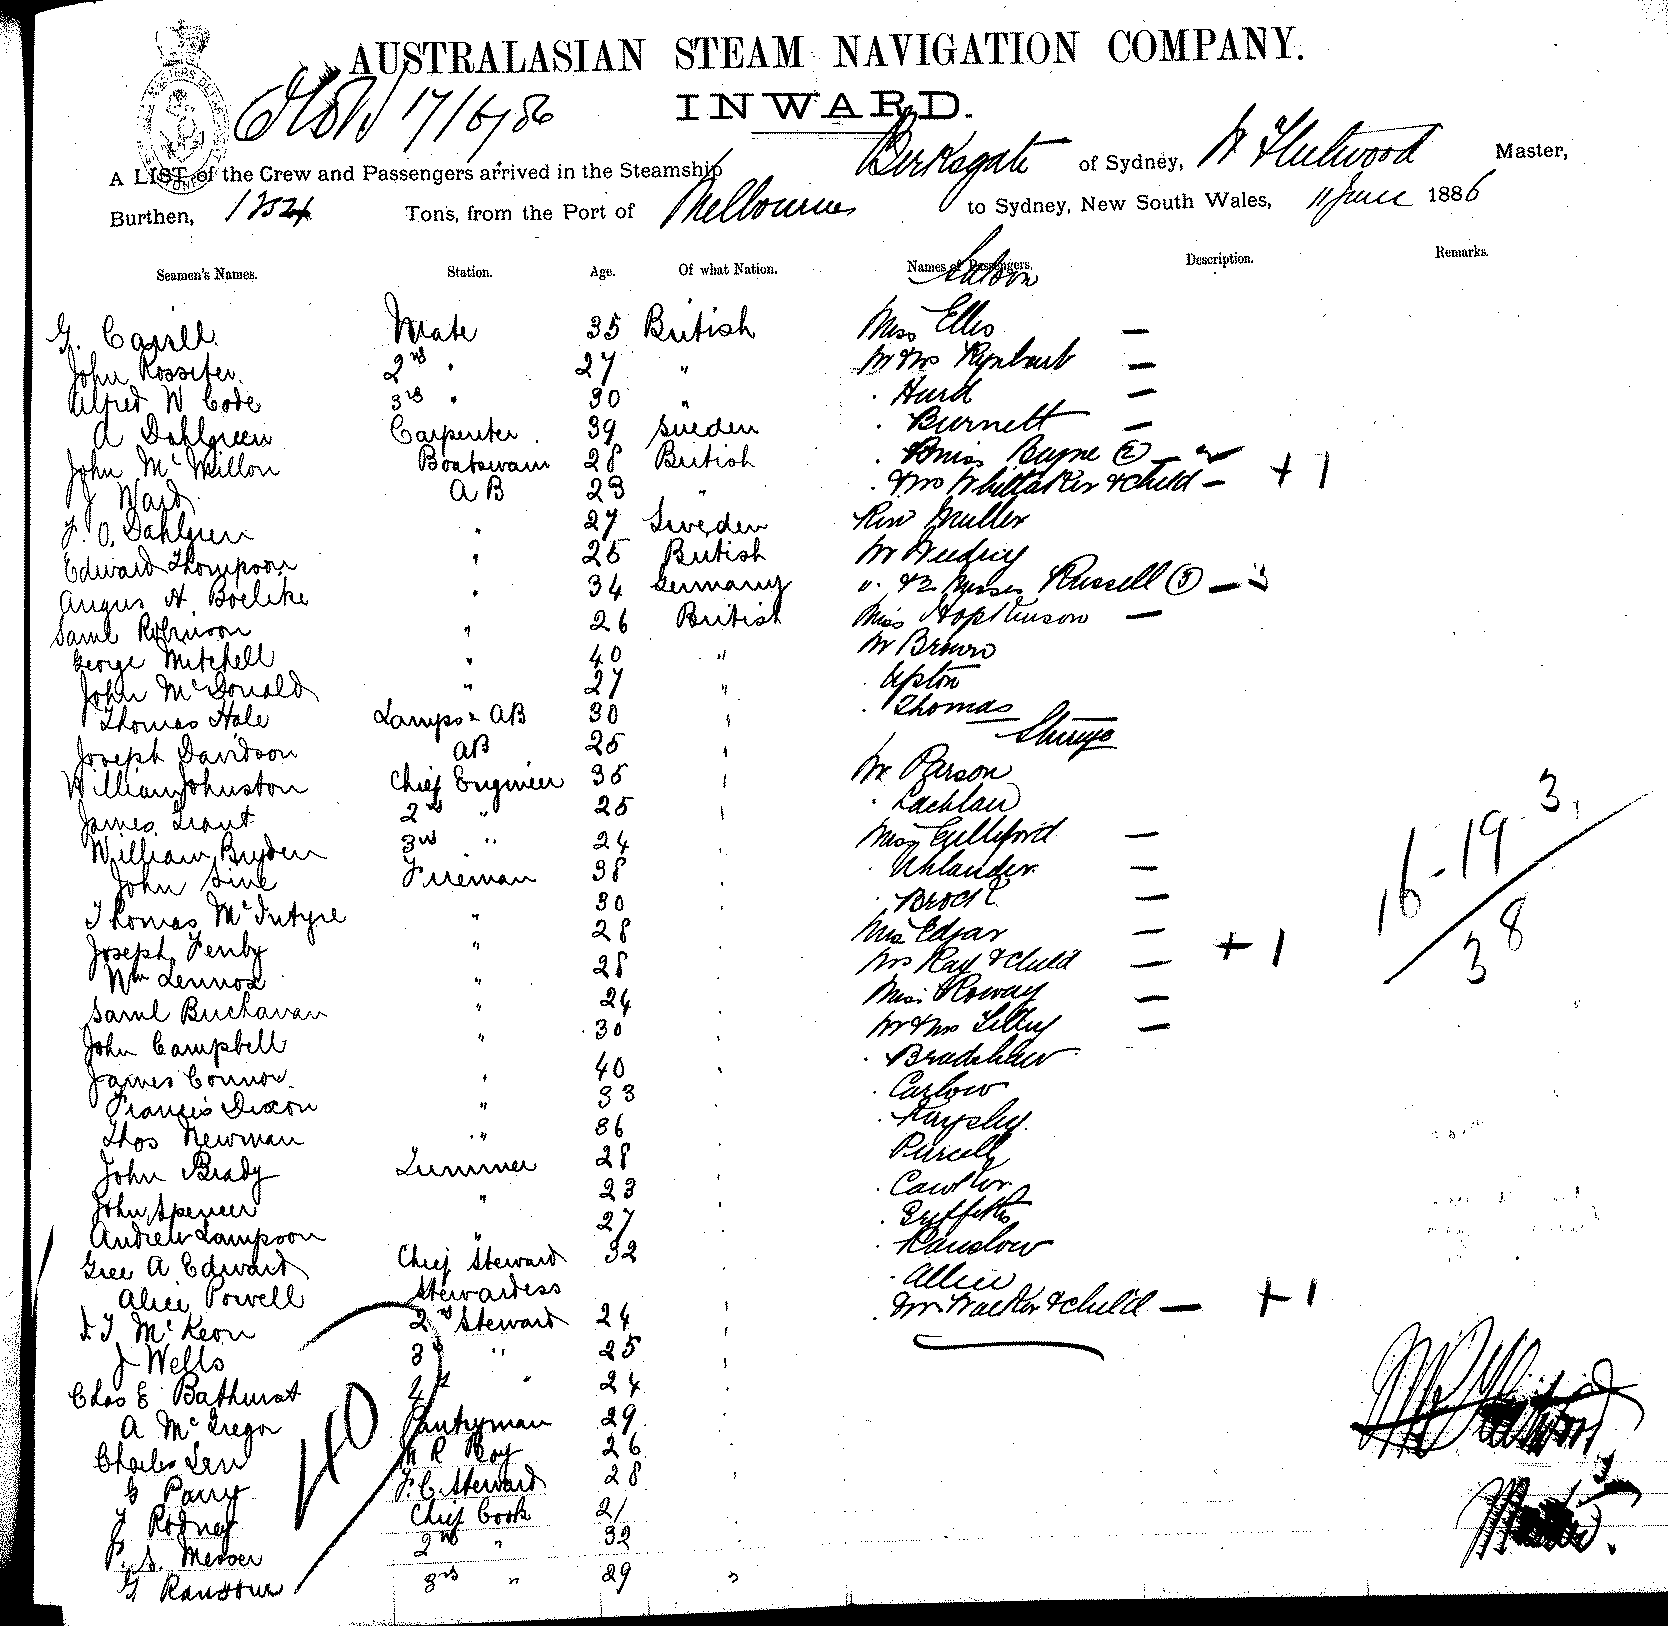 AUSTRALASIAN STEAM NAVIGATION COMPANY.
17/6/86
INWARD.
A LIST of the Crew and Passengers arrived in the Steamship Berksgate of Sydney, W Fleetwood Master,
Burthen, Tons, from the Port of Melbourne to Sydney, New South Wales, 11 June 1886
Seamen's Names. Station. Age. Of what Nation. Names of Passengers. Description. Remarks.
Saloon
G. Mate 35 British Miss Ellis —
John Rossiter 2nd " 27 " Mr & Mrs —
Alfred W Code 3rd " 30 " . Hurd —
A Dahlgreen Carpenter . 39 Sweden . Burnett —
John McMillon Boatswain 28 British . Bayne (2) —
J Ward A B 23 " . & Mrs Whittaker & child — + 1
F. O. Dahlgren " 27 Sweden Rev Muller
Edward Thompson " 25 British Mr
Angus A. Boelike " 34 Germany " & 2 Misses Russell (3) — 3
Saml Robinson " 26 British Miss Hopkinson —
George Mitchell " 40 " Mr Brown
John McDonald " 27 " . Upton
Thomas Hale Lamps & AB 30 " . Thomas
Steerage
Joseph Davidson AB 25 "
William Johnston Chief Engineer 35 " Mr Pearson
James Grant 2nd " 25 " . Lachlan
William Bryden 3rd " 24 " Miss Gulliford —
John Sine Fireman 38 . Uhlander —
Thomas McIntyre " 30 . Brock —
Joseph Fenby " 28 Miss Edgar —
Wm Lennox " 28 Mrs Ray & child — + 1
Saml Buchanan " 24 Miss Rowray —
John Campbell " 30 Mr & Mrs Lilley —
James Connor " 40 . Bradshaw
Francis Dixon " 33 . Carlow
Thos Newman " 36 .
John Brady Trimmer 28 Purcell
John Spencer " 23 . Cawker
Andrew Lampson " 27 . Griffiths
Geo A Edward Chief Steward 32 . Ranslow
Alice Powell Stewardess . Allen
D. J. McKeon 2nd Steward 24 . Mrs Walker & child — + 1
J Wells 3rd " 25
Chas E Bathurst 4th " 24
A McGregor Pantryman 29
Charles Lew M R Boy 26
G Parry F. C. Steward 28
J Rodney Chief Cook 21
P. S. Messer 2nd " 32
G Ransome 3rd " 29 "
40
16 - 19 3
38
W Fleetwood
Master.